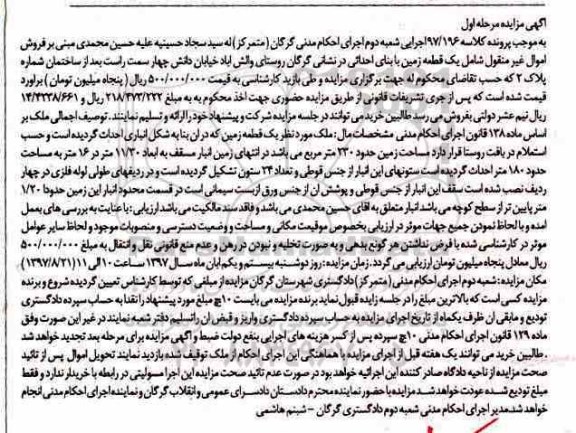 آگهی مزایده مرحله اول
به موجب پرونده کلاسه ۹۷/۱۹۶ اجرایی شعبه دوم اجرای احکام مدنی گرگان (متمرکز) له سید سجاد حسینیه علیه حسین محمدی مبنی بر فروش
اموال غیر منقول شامل یک قطعه زمین با بنای احداثی در نشانی گرگان روستای والش آباد خیابان دانش چهار سمت راست بعد از ساختمان شماره
پلاک ۲ که حسب تقاضای محکوم له جهت برگزاری مزایده و طی بازدید کارشناسی به قیمت ۵۰۰/۰۰۰/۰۰۰ ریال ( پنجاه میلیون تومان ) برآورد
قیمت شده است که پس از جری تشریفات قانونی از طریق مزایده حضوری جهت اخذ محکوم به به مبلغ ۲۱۸/۴۷۳/۲۲۲ ریال و ۱۴/۴۳۳۸/۶۶۱
ریال نیم عشر دولتی بفروش می رسد طالبین خرید می توانند در جلسه مزایده شرکت و پیشنهاد خود را ارائه و تسلیم نمایند. توصیف اجمالی ملک بر
اساس ماده ۱۳۸ قانون اجرای احکام مدنی مشخصات مال : ملک مورد نظر یک قطعه زمین که در آن بنا به شکل انباری احداث گردیده است و حسب
استعلام در بافت روستا قرار دارد مساحت زمین حدود ۲۳۰ متر مربع می باشد در انتهای زمین انبار مسقف به ابعاد ۱۱/۳۰ متر در ۱۶ متر به مساحت
حدود ۱۸۰ متر احداث گردیده است ستونهای این انبار از جنس قوطی و تعداد ۲۴ ستون تشکیل گردیده است و در ردیفهای طولی لوله فلزی در چهار
ردیف نصب شده است سقف این انبار از جنس قوطی و پوشش آن از جنس ورق ازبست سیمانی است در قسمت محدود انبار این زمین حدودا ۱/۲۰
متر پایین تر از سطح کوچه می باشد انبار متعلق به آقای حسین محمدی می باشد و فاقد سند مالکیت می باشد ارزیابی : با عنایت به بررسی های بعمل
آمده و با لحاظ نمودن جمیع جهات موثر در ارزیابی بخصوص موقیعت مکانی و مساحت و وضعیت دسترسی و منصوبات موجود و لحاظ سایر عوامل
موثر در کارشناسی شده با فرض نداشتن هر گونه بدهی و به صورت تخلیه و نبودن در رهن و عدم منع قانونی نقل و انتقال به مبلغ ۵۰۰/۰۰۰/۰۰۰
ریال معادل پنجاه میلیون تومان ارزیابی می گردد. زمان مزایده : روز دوشنبه بیستم و یکم آبان ماه سال ۱۳۹۷ ساعت ۱۰ الی ۱۱ (۱۳۹۷/۸/۲۱)
مکان مزایده : شعبه دوم اجرای احکام مدنی (متمرکز) دادگستری شهرستان گرگان مزایده از مبلغی که توسط کارشناس تعیین گردیده شروع و برنده
مزایده کسی است که بالاترین مبلغ را در جلسه مزایده قبول نماید برنده مزایده می بایست ۱۰٪ مبلغ مورد پیشنهاد را نقدا به حساب سپرده دادگستری
تودیع و مابقی آن ظرف یکماه از تاریخ اجرای مزایده به حساب سپرده دادگستری واریز و قبض آن را تسلیم دفتر شعبه نمایند در غیر این صورت وفق
ماده ۱۲۹ قانون اجرای احکام مدنی ۱۰٪ سپرده پس از کسر هزینه های اجرایی بنفع دولت ضبط و آگهی مزایده برای مرحله بعد تجدید خواهد شد
. طالبین خرید می توانند یک هفته قبل از اجرای مزایده با هماهنگی این اجرای احکام از ملک توقیف شده بازدید نمایند تحویل اموال پس از تائید
صحت مزایده از ناحیه دادگاه صادر کننده این اجرائیه خواهد بود در صورت عدم تائید صحت مزایده این اجرا مسولیتی در رابطه با خریدار ندارد و فقط
مبلغ تودیع شده عودت خواهد شد مزایده با حضور نماینده محترم دادستان دادسرای عمومی و انقلاب گرگان و نماینده اجرای احکام مدنی انجام
خواهد شد. مدیر اجرای احکام مدنی شعبه دوم دادگستری گرگان – شبنم هاشمی